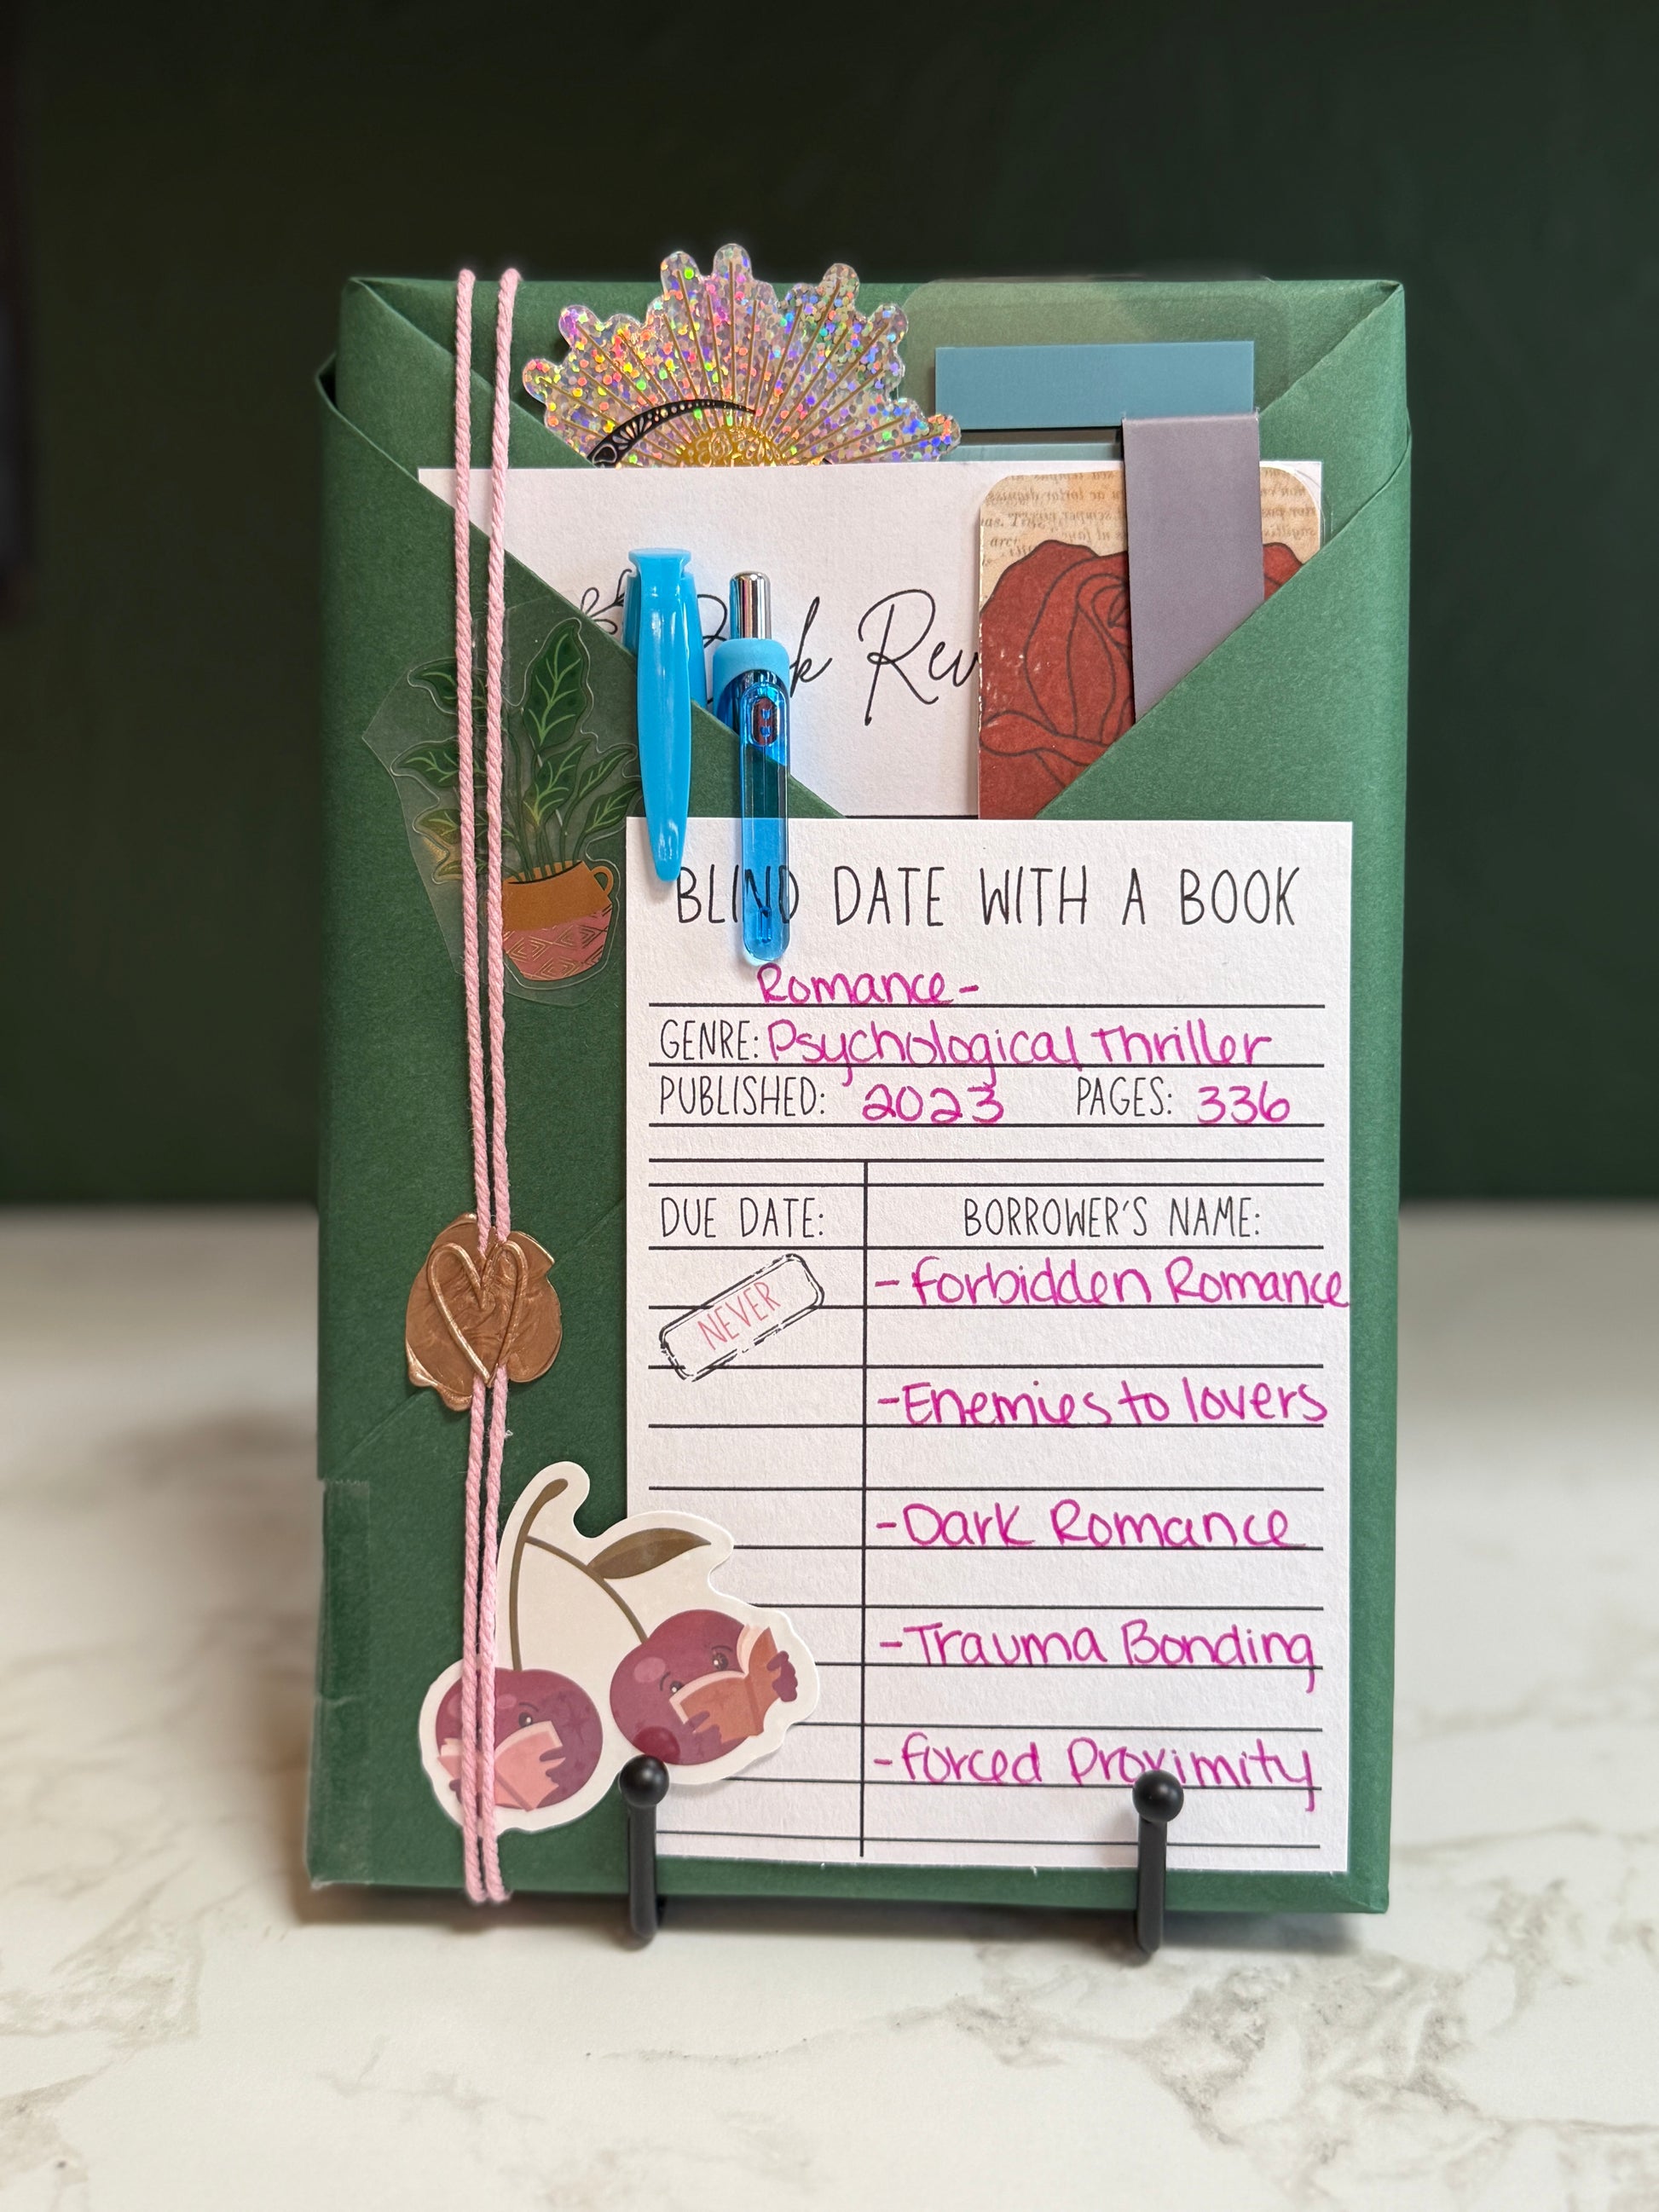 Book Rev
BLIND DATE WITH A BOOK
Romance-
GENRE: Psychological Thriller
PUBLISHED: 2023 PAGES: 336
DUE DATE: BORROWER'S NAME:
NEVER
-Forbidden Romance
-Enemies to lovers
-Dark Romance
-Trauma Bonding
-Forced Proximity